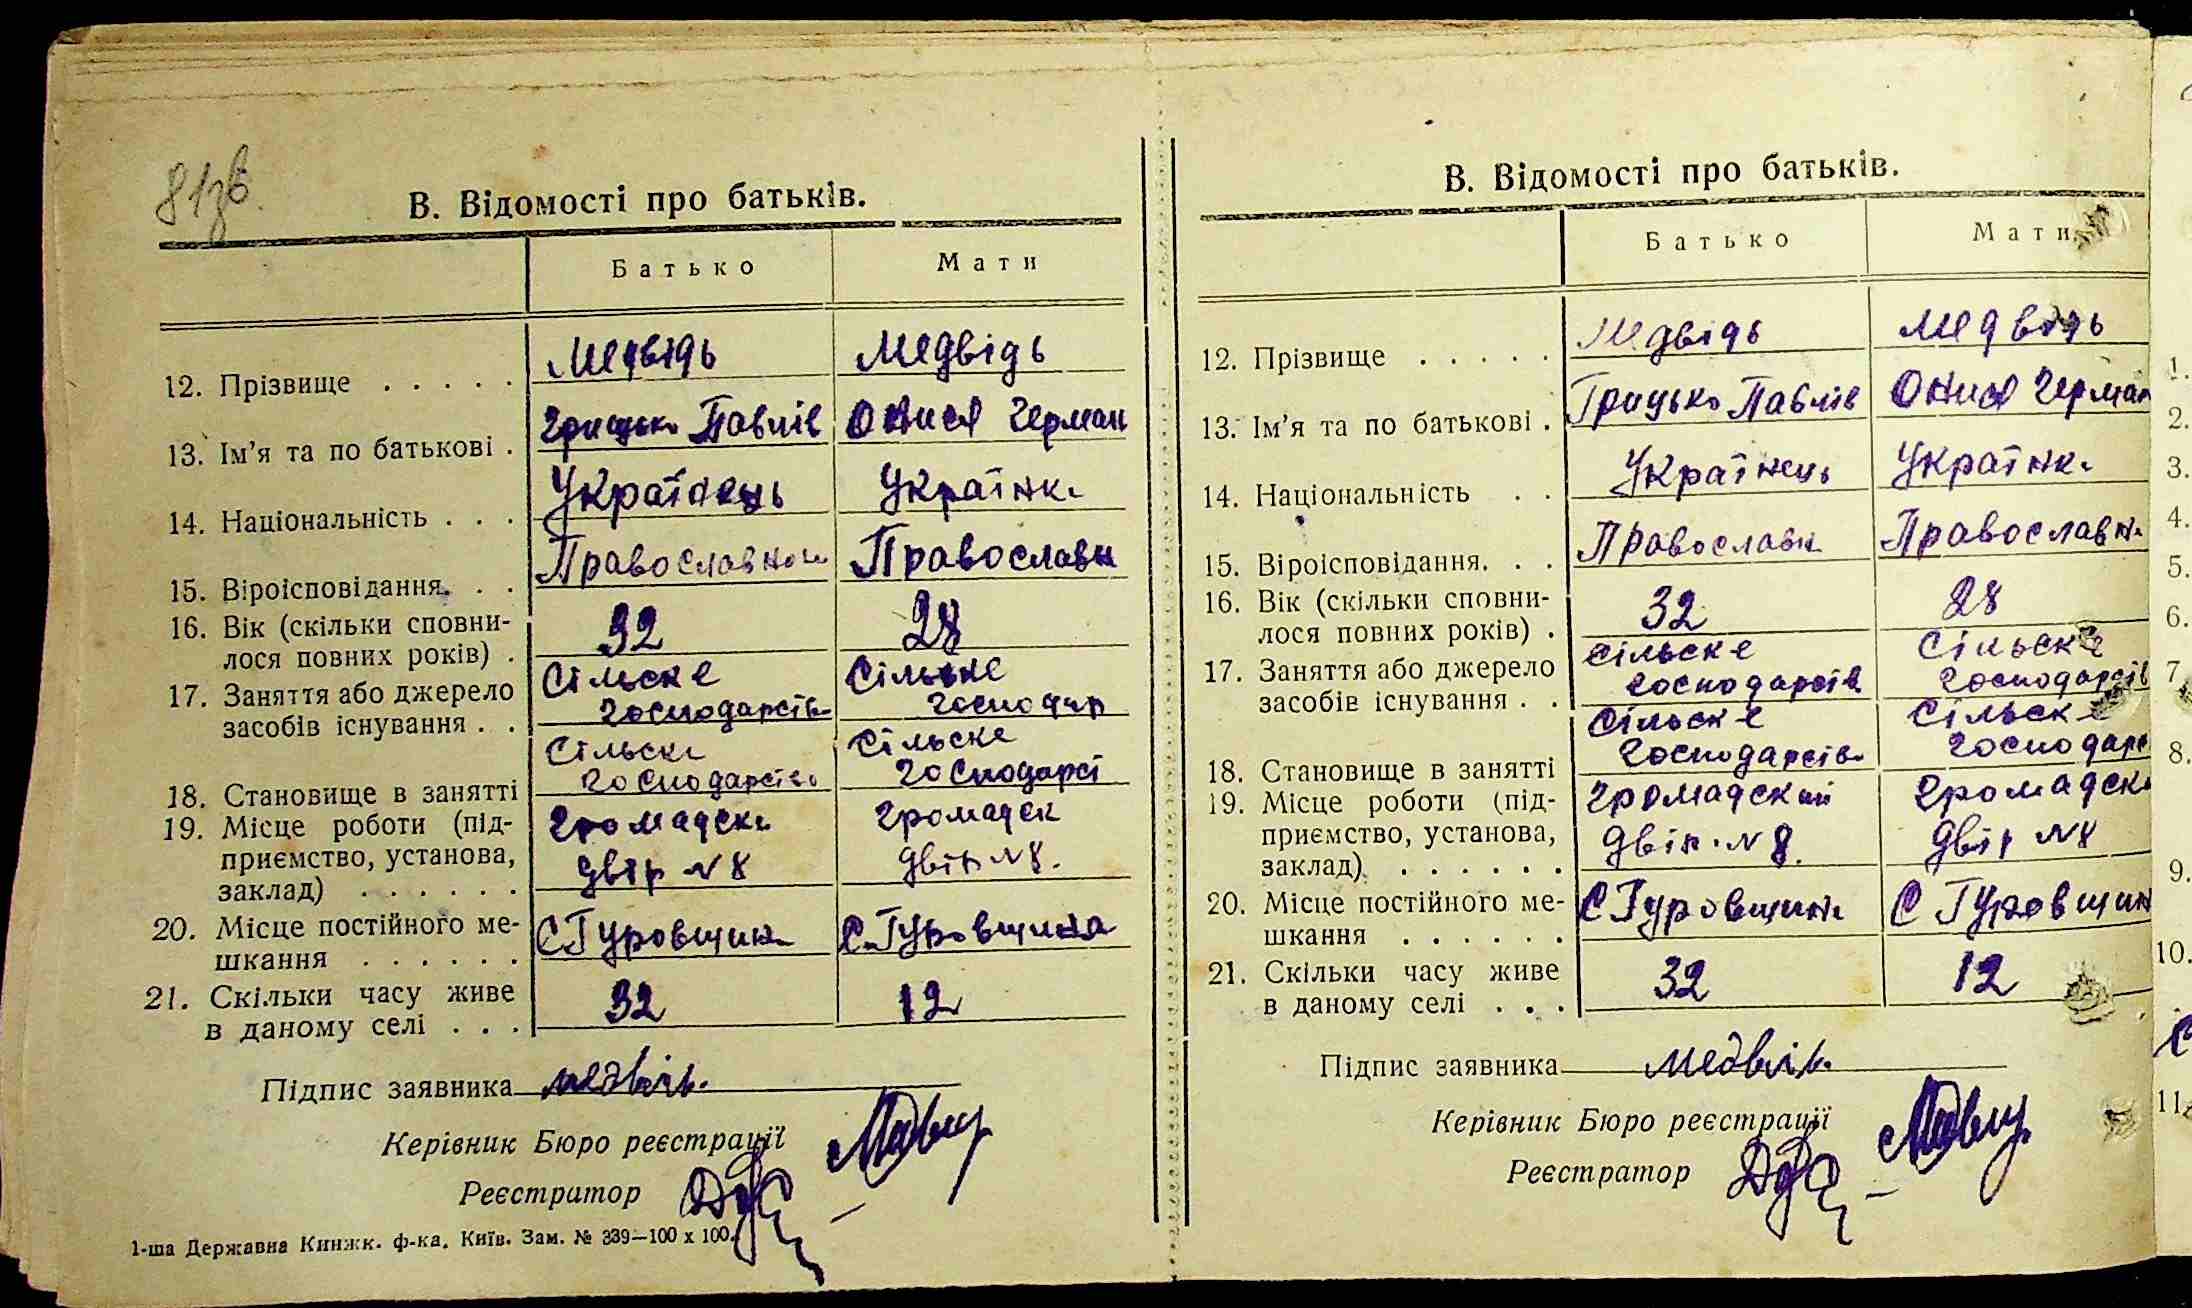 81зв.
В. Відомості про батьків.
Батько Мати
12. Прізвище . . . . . Медвідь Медвідь
13. Ім'я та по батькові . Грицько Павлів Онися Герман
14. Національність . . . Українець Українк.
15. Віроісповідання. . . Православн Православн
16. Вік (скільки сповни-
лося повних років) . 32 28
17. Заняття або джерело Сільске Сільське
засобів існування . . господарств господар
Сільске Сільске
18. Становище в занятті господарство господарсі
19. Місце роботи (під- громадск. громадск
приємство, установа,
заклад) . . . . . . двір №8 двір №8.
20. Місце постійного ме-
шкання . . . . . . С Гуровщин. С. Гуровщина
21. Скільки часу живе
в даному селі . . . 32 12
Підпис заявника Медвідь.
Керівник Бюро реєстрації
Реєстратор
1-ша Державна Книжк. ф-ка. Київ. Зам. № 339—100 х 100.
В. Відомості про батьків.
Батько Мати
12. Прізвище . . . . . Медвідь Медвідь
13. Ім'я та по батькові . Грицько Павлів Онися Герман
14. Національність . . Українець Українк.
15. Віроісповідання. . . Православн Православн.
16. Вік (скільки сповни-
лося повних років) . 32 28
17. Заняття або джерело сільске Сільске
засобів існування . . господарств господарств
Сільске Сільске
18. Становище в занятті господарств. господарс
19. Місце роботи (під- громадский громадск
приємство, установа,
заклад) . . . . . . двір. №8. двір №8
20. Місце постійного ме-
шкання . . . . . . С Гуровщин. С Гуровщин
21. Скільки часу живе
в даному селі . . . 32 12
Підпис заявника Медвідь.
Керівник Бюро реєстрації
Реєстратор
1.
2.
3.
4.
5.
6.
7.
8.
9.
10.
11.